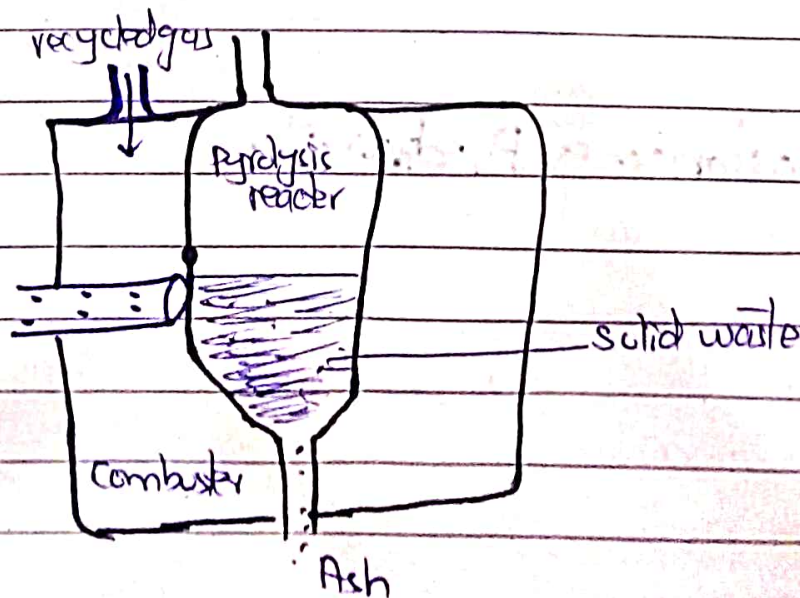 recycledgas
Pyrolysis
reacter
solid waste
Combuster
Ash